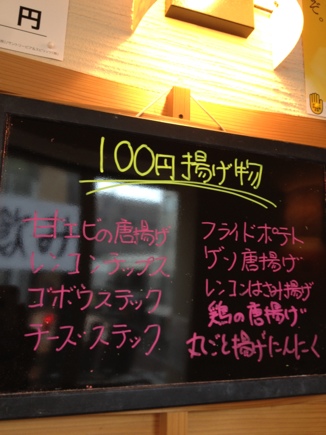 円
ぞ。
100円揚げ物
甘エビの唐揚げ
レンコンチップス
ゴボウスティック
チーズスティック
フライドポテト
ゲソ唐揚げ
レンコンはさみ揚げ
鶏の唐揚げ
丸ごと揚げにんにく